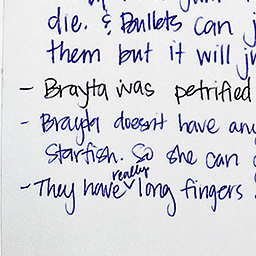 die. & Bullets can j
them but it will ju
- Brayta was petrified
- Brayta doesn't have any
Starfish. So she can
- They have really long fingers